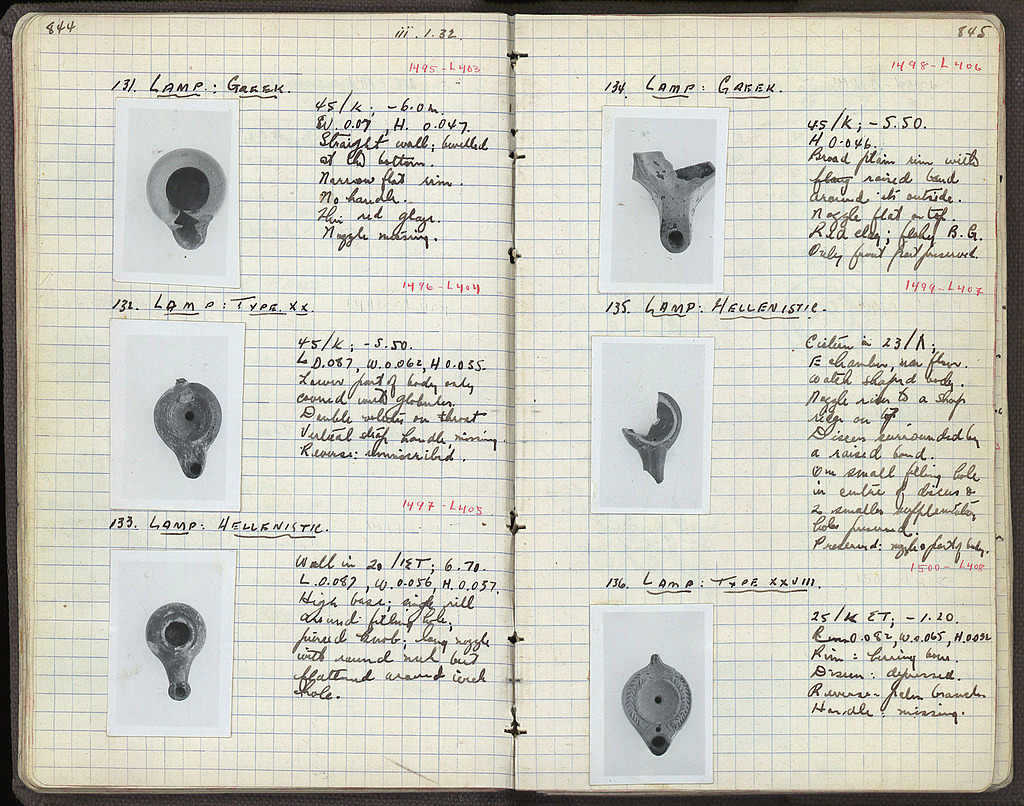 844
iii . 1.32.
1495-L403
131. LAMP: GREEK.
45/K; -6.0m.
W. 0.07, H. 0.047.
Straight wall; bevelled
at the bottom.
Narrow flat rim.
No handle.
Thin red glaze.
Nozzle missing.
1496-L404
132. LAMP: TYPE XX.
45/K; -5.50.
L 0.087, W. 0.062, H 0.035.
Lower part of body only
covered with globules.
Double volutes on throat
Vertical strap handle, missing.
Reverse: uninscribed.
1497-L405
133. LAMP: HELLENISTIC.
Well in 20/ΙΣΤ; 6.70.
L.0.087, W.0.056, H.0.037.
High base; single rill
around filling hole;
pierced knob; long nozzle
with round end but
flattened around wick
hole.
845
1498-L406
134. LAMP: GREEK.
45/K; -5.50.
H 0.046.
Broad plain rim with
raised band
around its outside.
Nozzle flat on top.
Red clay; flaky B.G.
Only front part preserved.
1499-L407
135. LAMP: HELLENISTIC.
Cistern in 23/Λ;
E chamber, near floor.
Watch shaped body.
Nozzle rises to a sharp
ridge on top.
Discus surrounded by
a raised band.
One small filling hole
in centre of discus &
2 smaller supplementary
holes preserved.
Preserved: nozzle & part of body.
1500-L408
136. LAMP: TYPE XXVIII.
25/K ΣΤ; -1.20.
0.082, W.0.065, H.0.032
Rim: herring bone.
Discus: depressed.
Reverse- palm branches
Handle: missing.